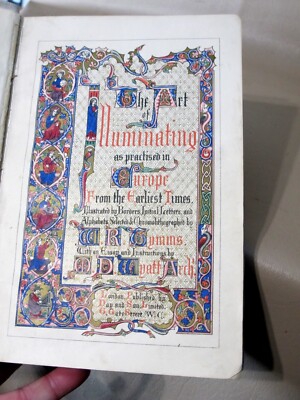 The Art
of
Illuminating
as practised in
Europe
From the Earliest Times.
Illustrated by Borders, Initial Letters, and
Alphabets, Selected & Chromolithographed by
W. R. Tymms.
With an Essay and Instructions by
M. D. Wyatt, Arch.
London, Published by
Day and Son, Limited,
Gate Street, W.C.